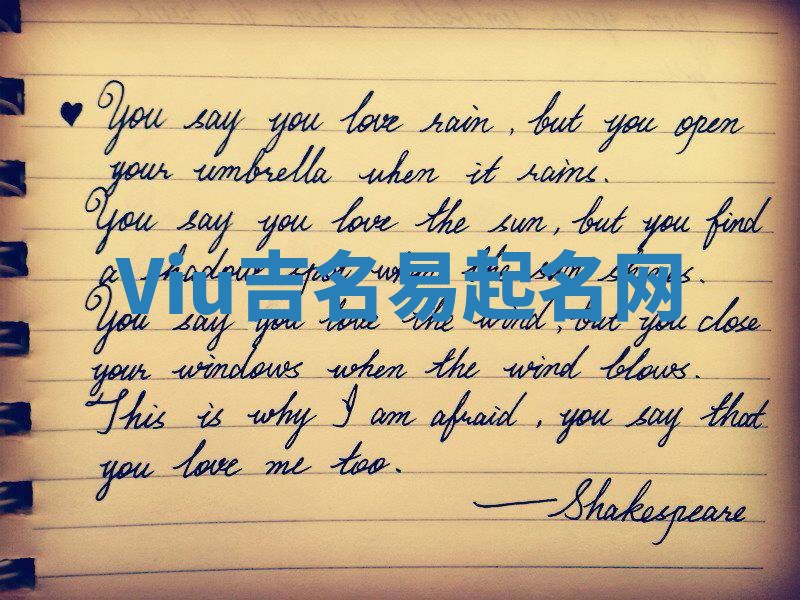 ♥ You say you love rain, but you open
your umbrella when it rains.
You say you love the sun, but you find
a shadow spot when the sun shines.
Viu吉名易起名网
You say you love the wind, but you close
your windows when the wind blows.
This is why I am afraid, you say that
you love me too.
— Shakespeare